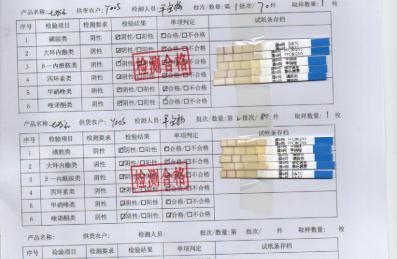 产品名称: 供货农户: yoo5 检测人员: 批次/数量: 第 1 批次/70件 取样数量: 1 枚
序号 检验项目 检测要求 检验结果 单项判定 试纸条存档
1 磺胺类 阴性 ☑阴性/☐阳性 ☑合格/☐不合格
2 大环内酯类 阴性 ☑阴性/☐阳性 ☑合格/☐不合格
3 β-内酰胺类 阴性 ☑阴性/☐阳性 ☑合格/☐不合格
4 四环素类 阴性 ☑阴性/☐阳性 ☑合格/☐不合格
5 甲硝唑类 阴性 ☑阴性/☐阳性 ☑合格/☐不合格
6 喹诺酮类 阴性 ☑阴性/☐阳性 ☑合格/☐不合格
检测合格
产品名称: 供货农户: yoo5 检测人员: 批次/数量: 第 2 批次/80件 取样数量: 1 枚
序号 检验项目 检测要求 检验结果 单项判定 试纸条存档
1 磺胺类 阴性 ☑阴性/☐阳性 ☑合格/☐不合格
2 大环内酯类 阴性 ☑阴性/☐阳性 ☑合格/☐不合格
3 β-内酰胺类 阴性 ☑阴性/☐阳性 ☑合格/☐不合格
4 四环素类 阴性 ☑阴性/☐阳性 ☑合格/☐不合格
5 甲硝唑类 阴性 ☑阴性/☐阳性 ☑合格/☐不合格
6 喹诺酮类 阴性 ☑阴性/☐阳性 ☑合格/☐不合格
检测合格
产品名称: 供货农户: 检测人员: 批次/数量: 第 批次/ 件 取样数量: 枚
序号 检验项目 检测要求 检验结果 单项判定 试纸条存档